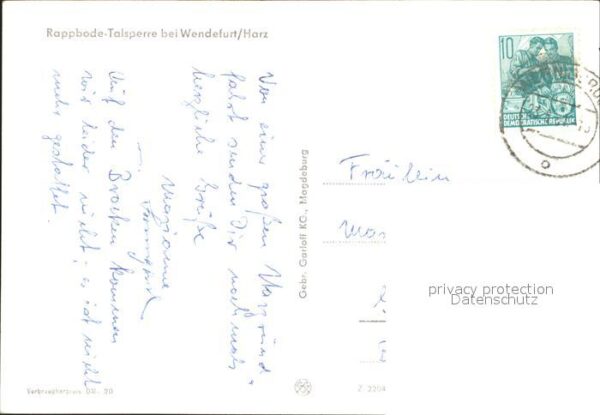 Rappbode-Talsperre bei Wendefurt/Harz
Von einer großen Harzrund-
fahrt senden Dir nochmals
herzliche Grüße
Marianne
Auf den Brocken kommen
wir leider nicht, es ist nicht
mehr gestattet.
Verbraucherpreis DM -.20
Gebr. Garloff KG., Magdeburg
10
DEUTSCHE
DEMOKRATISCHE REPUBLIK
Fräulein
Mar
Z 2204
privacy protection
Datenschutz